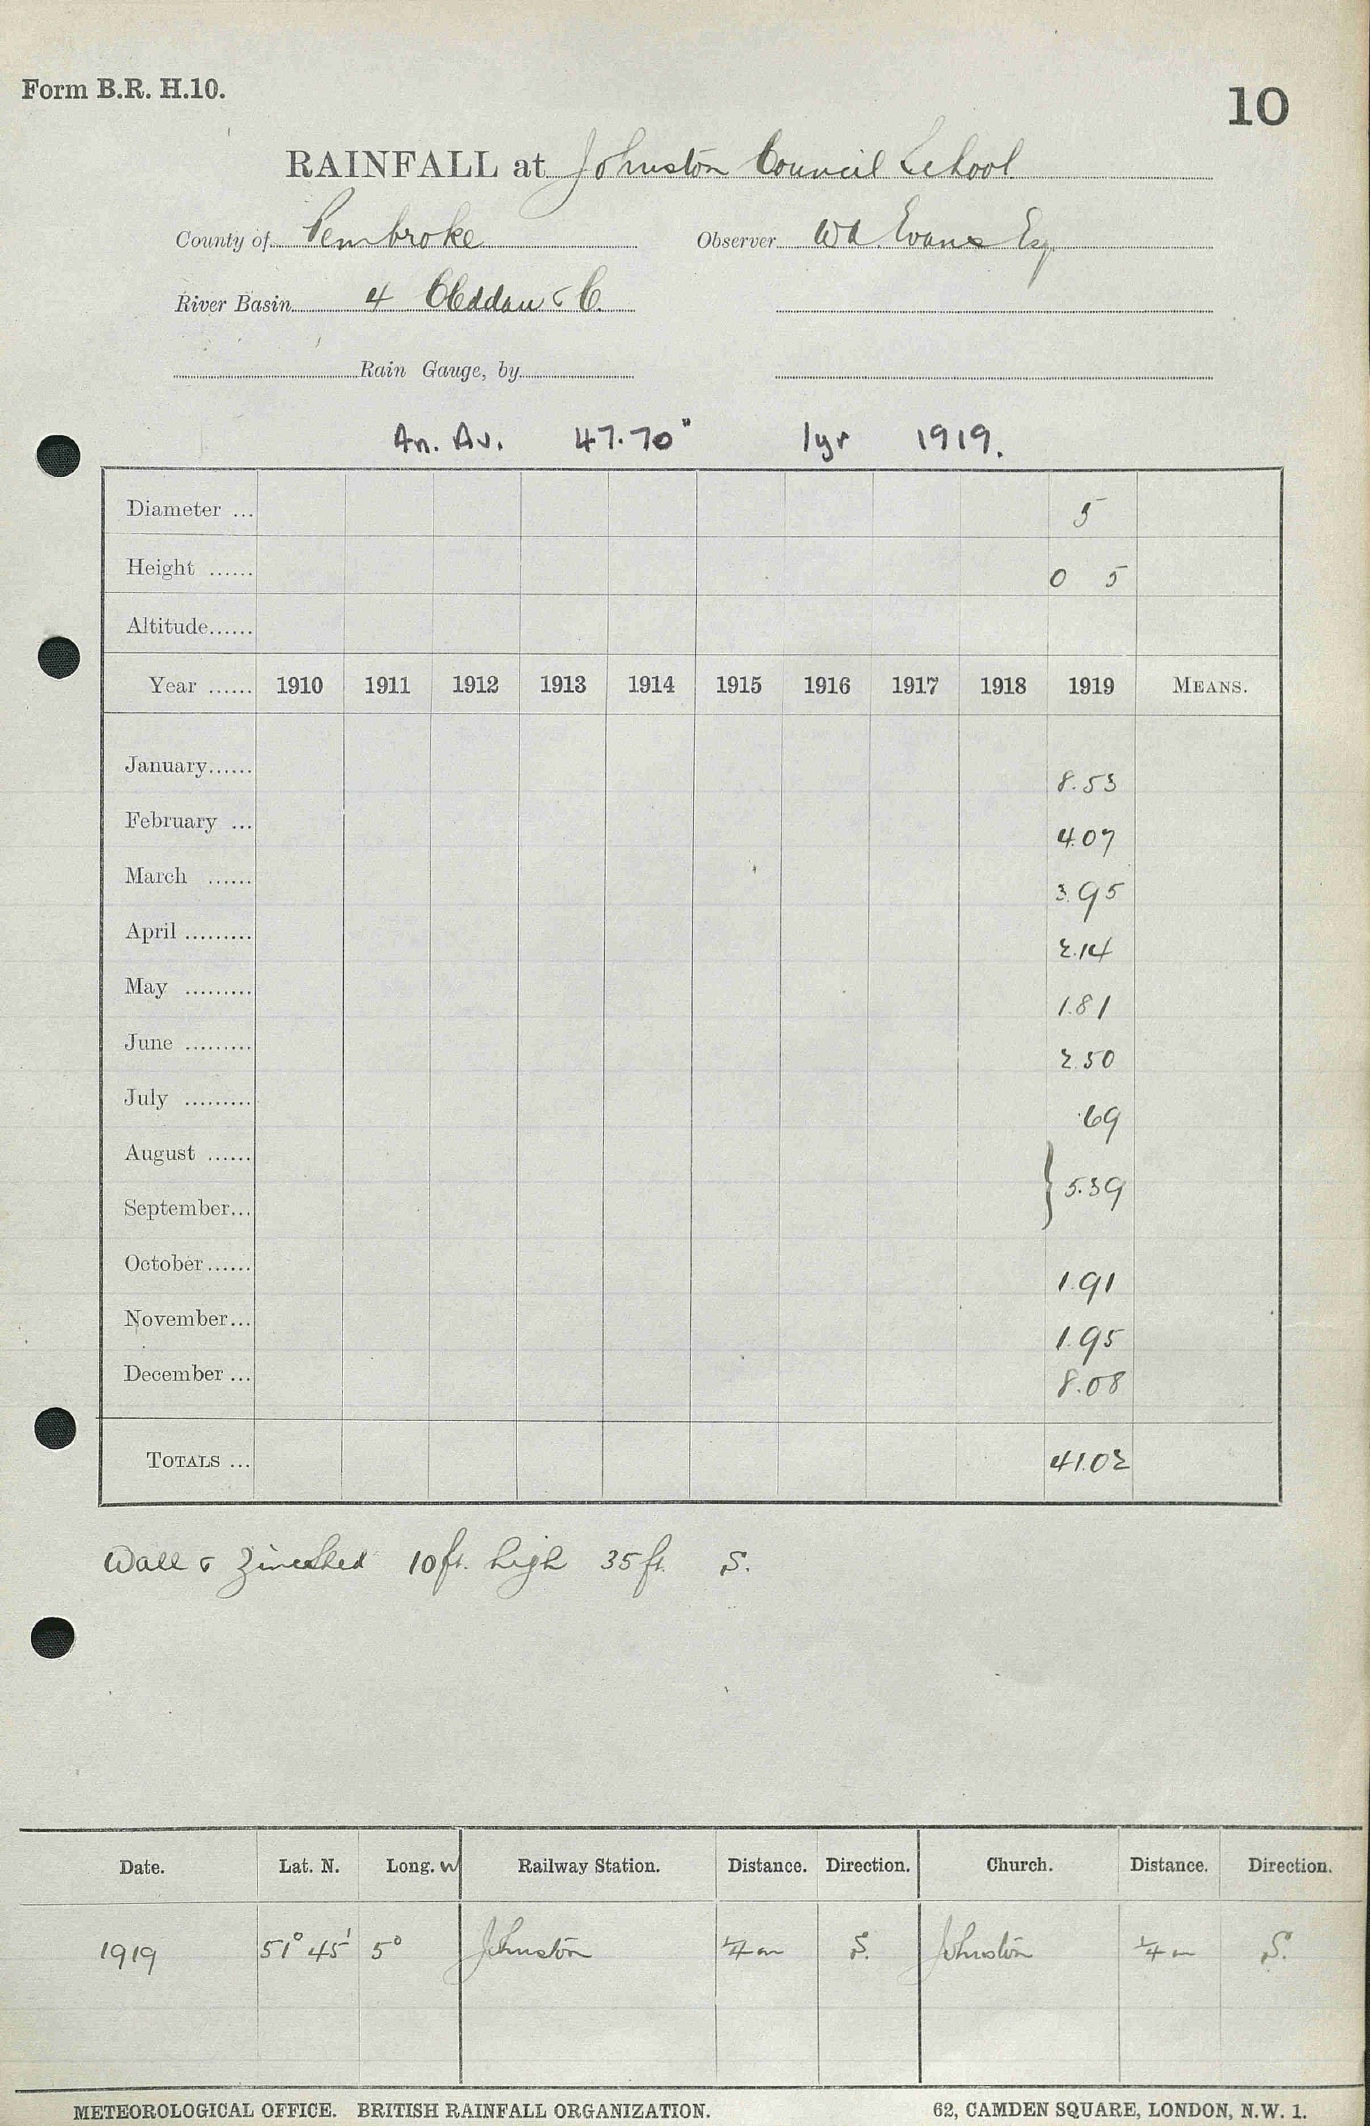 Form B.R. H.10.
10
RAINFALL at Johnston Council School
County of Pembroke Observer Wd. Evans Esq
River Basin 4 Cleddau & C.
Rain Gauge, by
An. Av. 47.70" 1yr 1919.
Diameter ... 5
Height ...... 0 5
Altitude......
Year ...... 1910 1911 1912 1913 1914 1915 1916 1917 1918 1919 MEANS.
January...... 8.53
February ... 4.07
March ...... 3.95
April ......... 2.14
May ......... 1.81
June ......... 2.50
July ......... .69
August ...... } 5.39
September...
October...... 1.91
November... 1.95
December ... 8.08
TOTALS ... 41.02
Wall & 10ft. high 35 ft. S.
Date. Lat. N. Long. W Railway Station. Distance. Direction. Church. Distance. Direction.
1919 51° 45' 5° Johnston ¼ m S. Johnston ¼ m S.
METEOROLOGICAL OFFICE. BRITISH RAINFALL ORGANIZATION. 62, CAMDEN SQUARE, LONDON, N.W. 1.